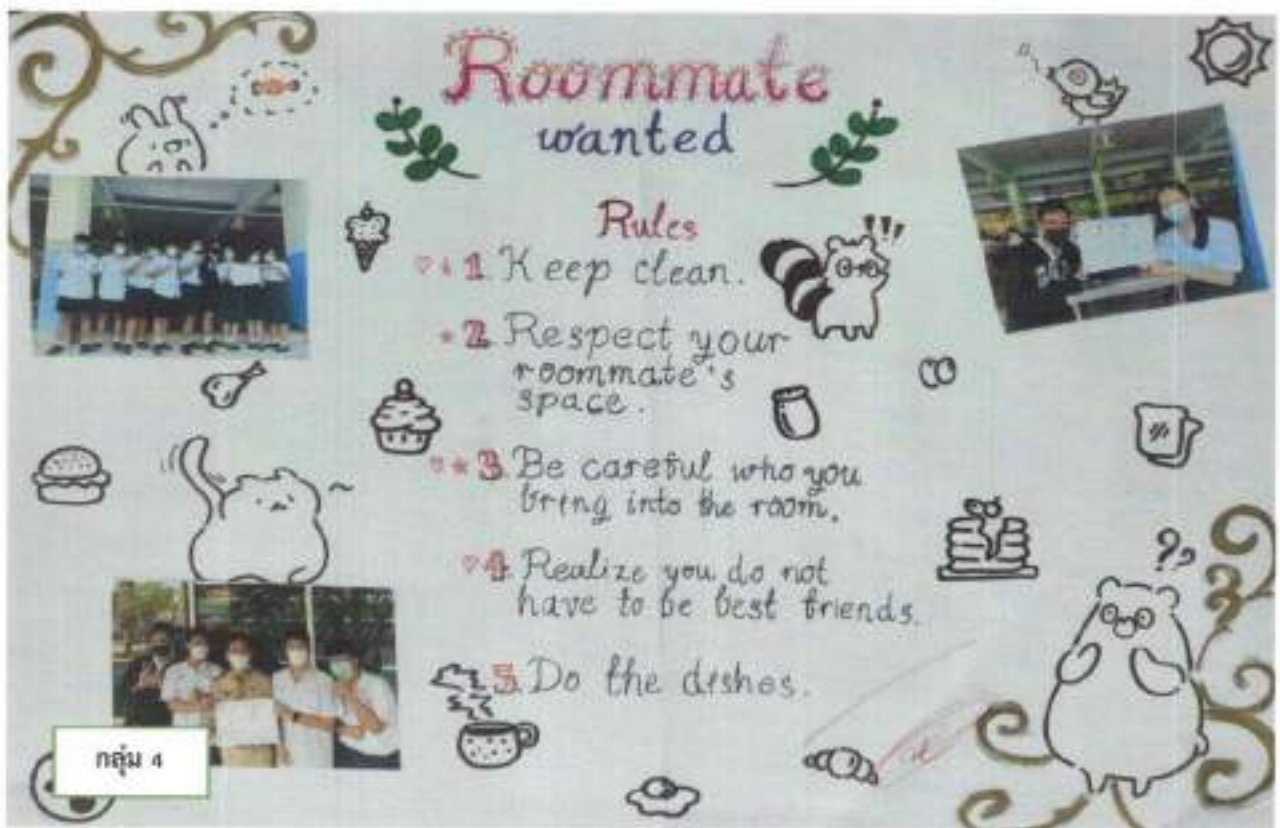 Roommate
wanted
Rules
1 Keep clean.
2 Respect your
roommate's
space.
3. Be careful who you
bring into the room.
4. Realize you do not
have to be best friends.
5. Do the dishes.
กลุ่ม 4